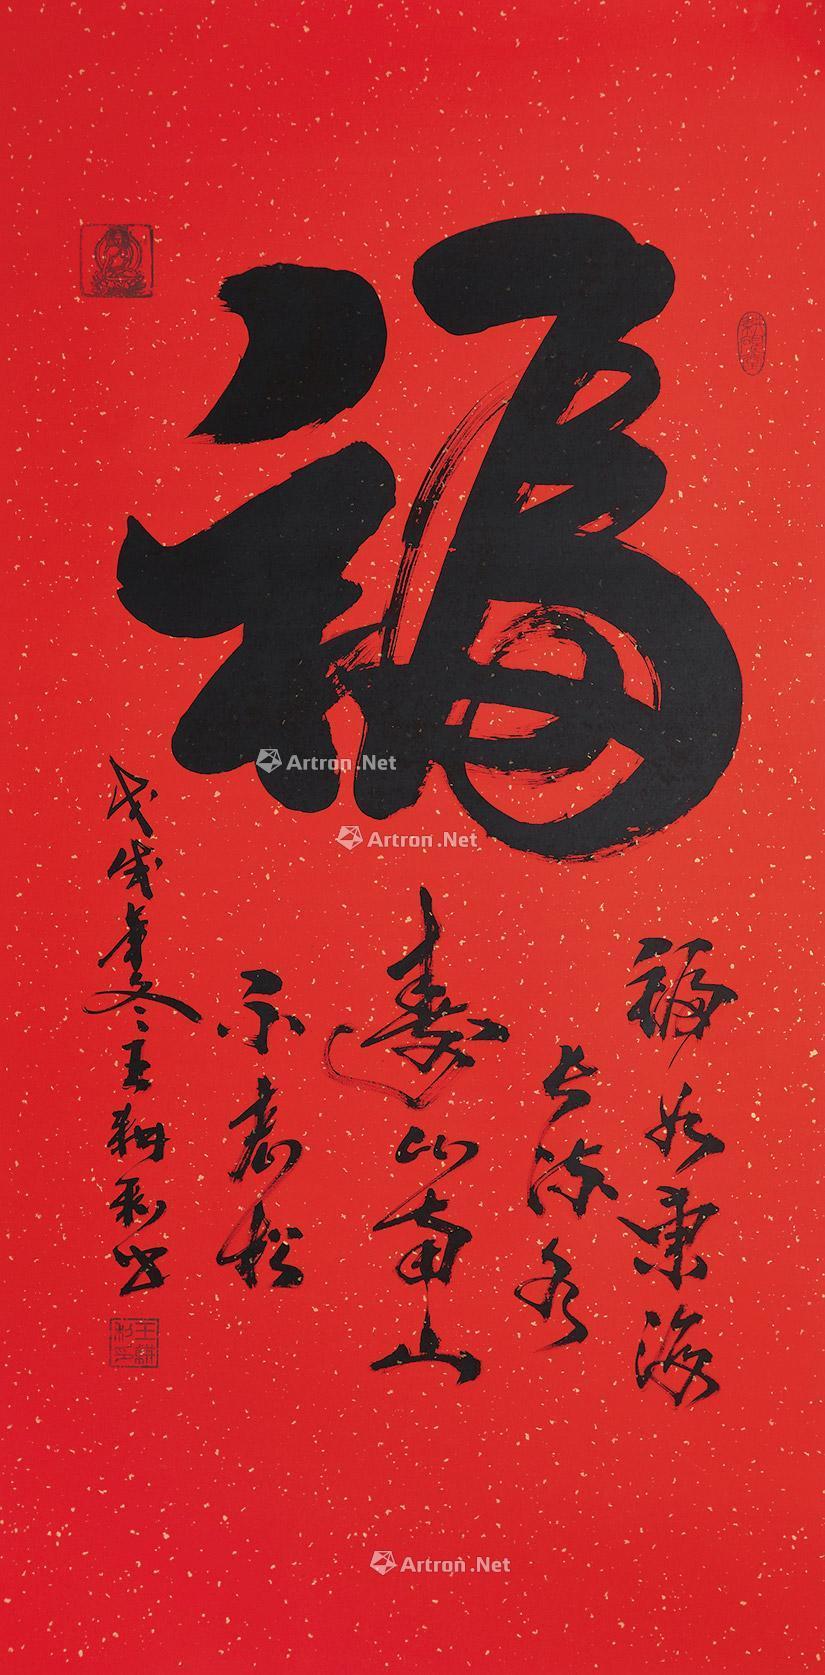 福
福如东海
长流水
寿比南山
不老松
戊戌年冬王耕彩书
Artron.Net
Artron.Net
Artron.Net